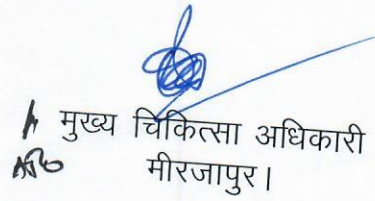 मुख्य चिकित्सा अधिकारी
मीरजापुर।